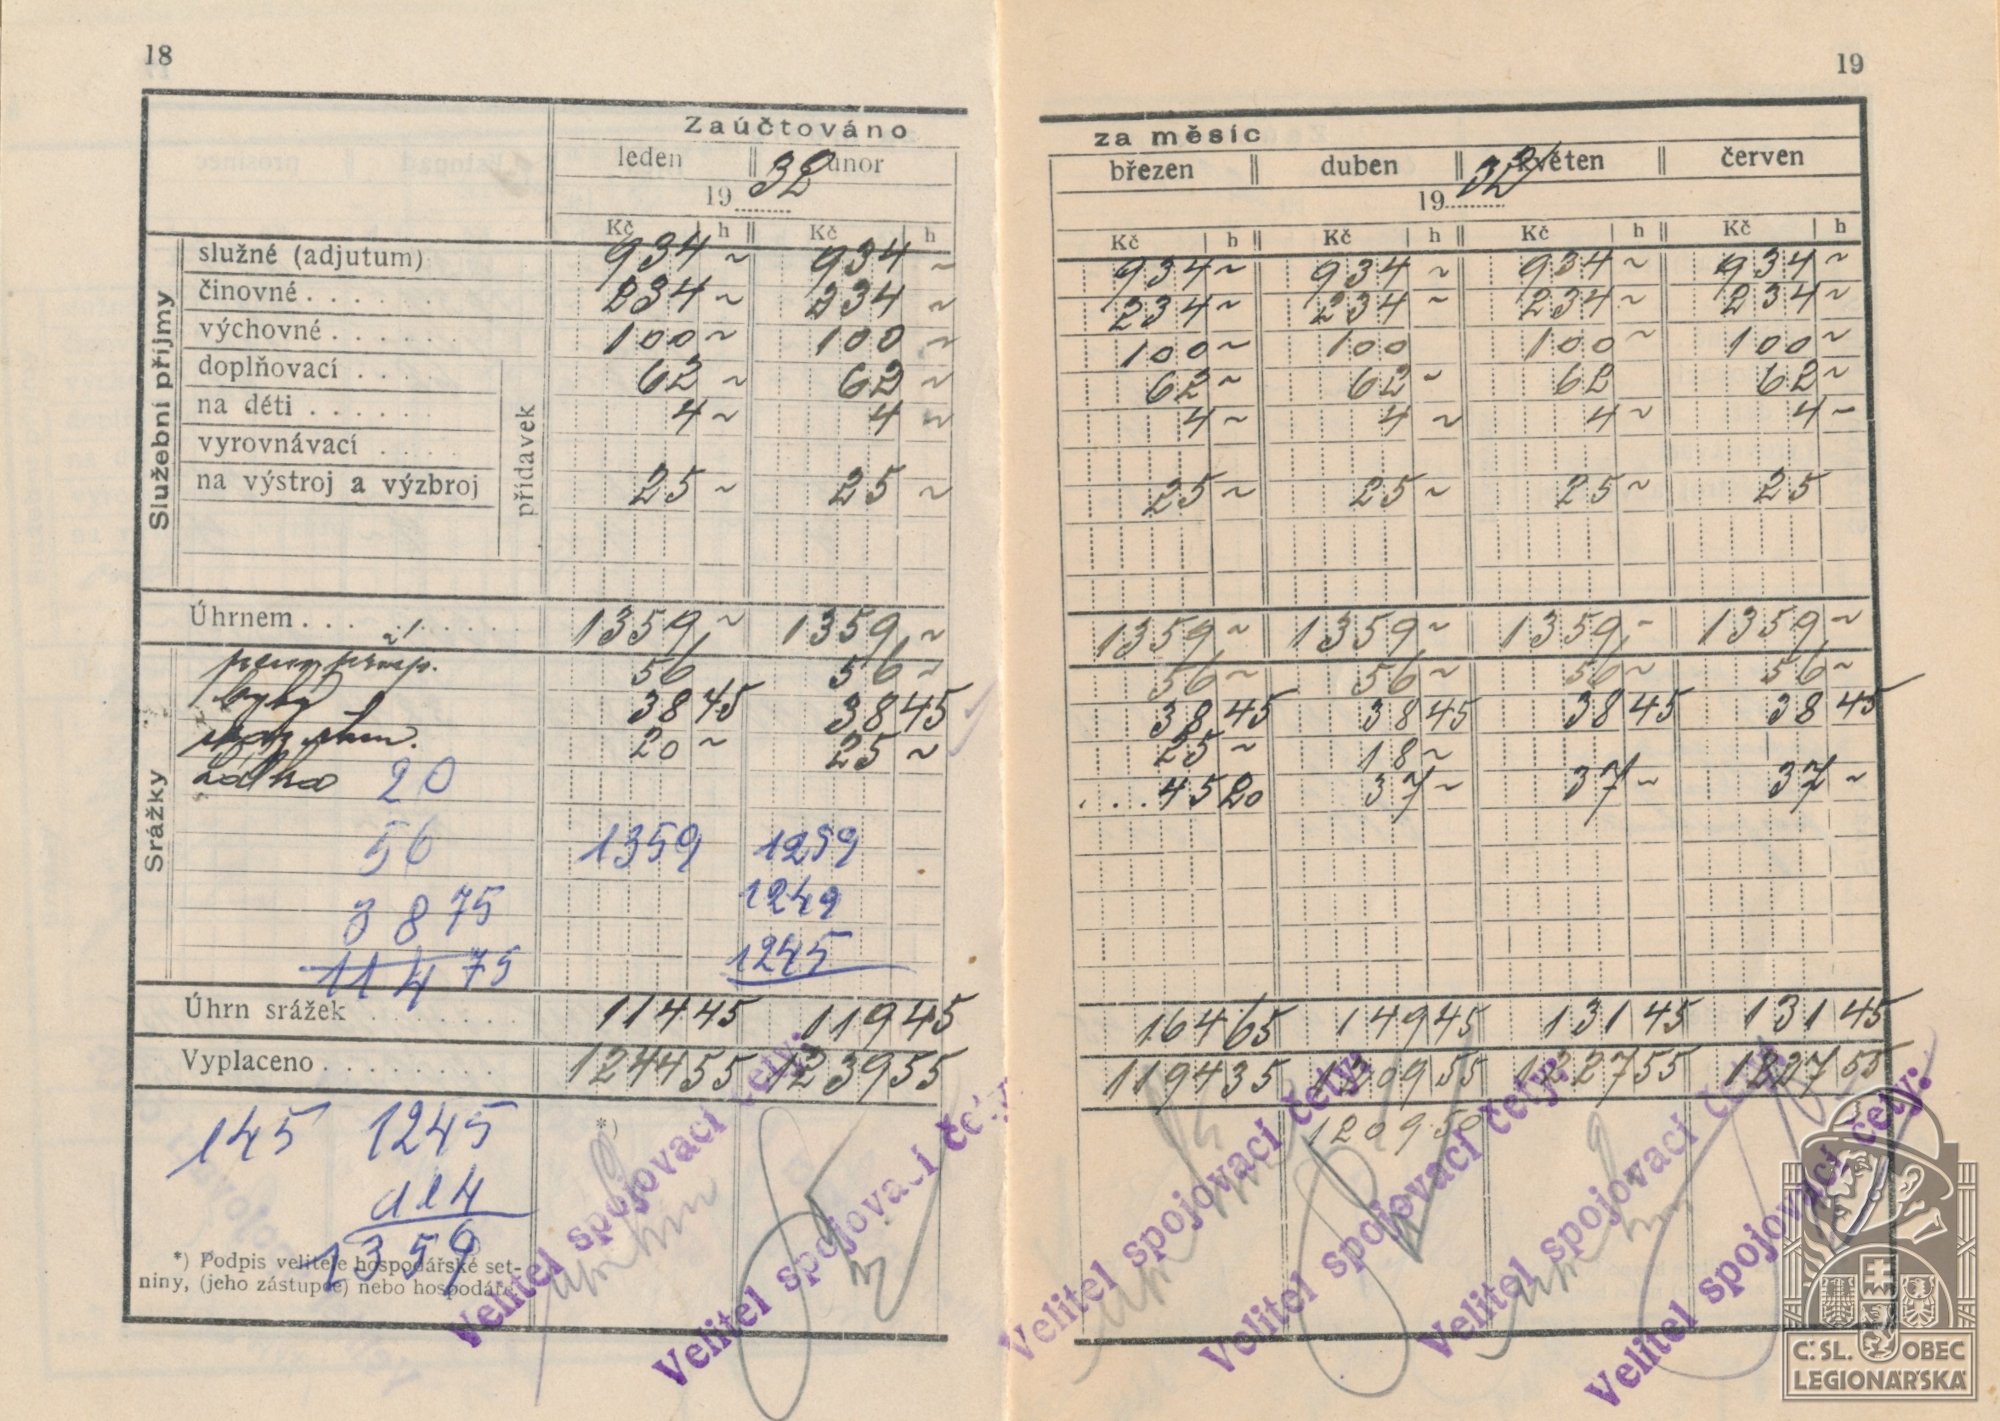 18
Zaúčtováno
leden || únor
19 32
Kč | h || Kč | h
Služební příjmy
služné (adjutum) 934 ~ 934 ~
činovné 234 ~ 234 ~
výchovné 100 ~ 100 ~
přídavek
doplňovací 62 ~ 62 ~
na děti 4 ~ 4 ~
vyrovnávací
na výstroj a výzbroj 25 ~ 25 ~
Úhrnem 1359 ~ 1359 ~
Srážky
56 56 ~
38 45 38 45
20 ~ 25 ~
20
56 1359 1259
38 75 1249
114 75 1245
Úhrn srážek 114 45 119 45
Vyplaceno 1244 55 1239 55
145 1245
114
1359
*)
*) Podpis velitele hospodářské set-
niny, (jeho zástupce) nebo hospodáře.
Velitel spojovací čety:
Velitel spojovací čety:
19
za měsíc
březen || duben || květen || červen
19 32
Kč | h || Kč | h || Kč | h || Kč | h
934 ~ 934 ~ 934 ~ 934 ~
234 ~ 234 ~ 234 ~ 234 ~
100 ~ 100 100 ~ 100 ~
62 ~ 62 ~ 62 62 ~
4 ~ 4 ~ 4 ~ 4 ~
25 ~ 25 ~ 25 ~ 25
1359 ~ 1359 ~ 1359 ~ 1359 ~
56 ~ 56 ~ 56 ~ 56 ~
38 45 38 45 38 45 38 45
25 ~ 18 ~
45 20 37 ~ 37 ~ 37 ~
164 65 149 45 131 45 131 45
1194 35 1209 55 1227 55 1227 55
1209.50
Velitel spojovací čety:
Velitel spojovací čety:
Velitel spojovací čety:
Velitel spojovací čety:
Č.SL. OBEC
LEGIONÁŘSKÁ